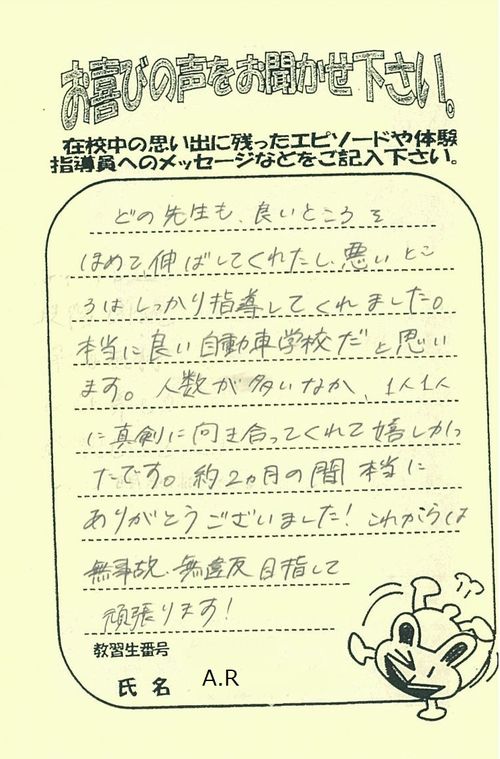 お喜びの声をお聞かせ下さい。
在校中の思い出に残ったエピソードや体験
指導員へのメッセージなどをご記入下さい。
どの先生も、良いところを
ほめて伸ばしてくれたし、悪いとこ
ろはしっかり指導してくれました。
本当に良い自動車学校だと思い
ます。人数が多いなか、1人1人
に真剣に向き合ってくれて嬉しかっ
たです。約2ヵ月の間本当に
ありがとうございました！これからは
無事故、無違反目指して
頑張ります！
教習生番号
氏名 A.R